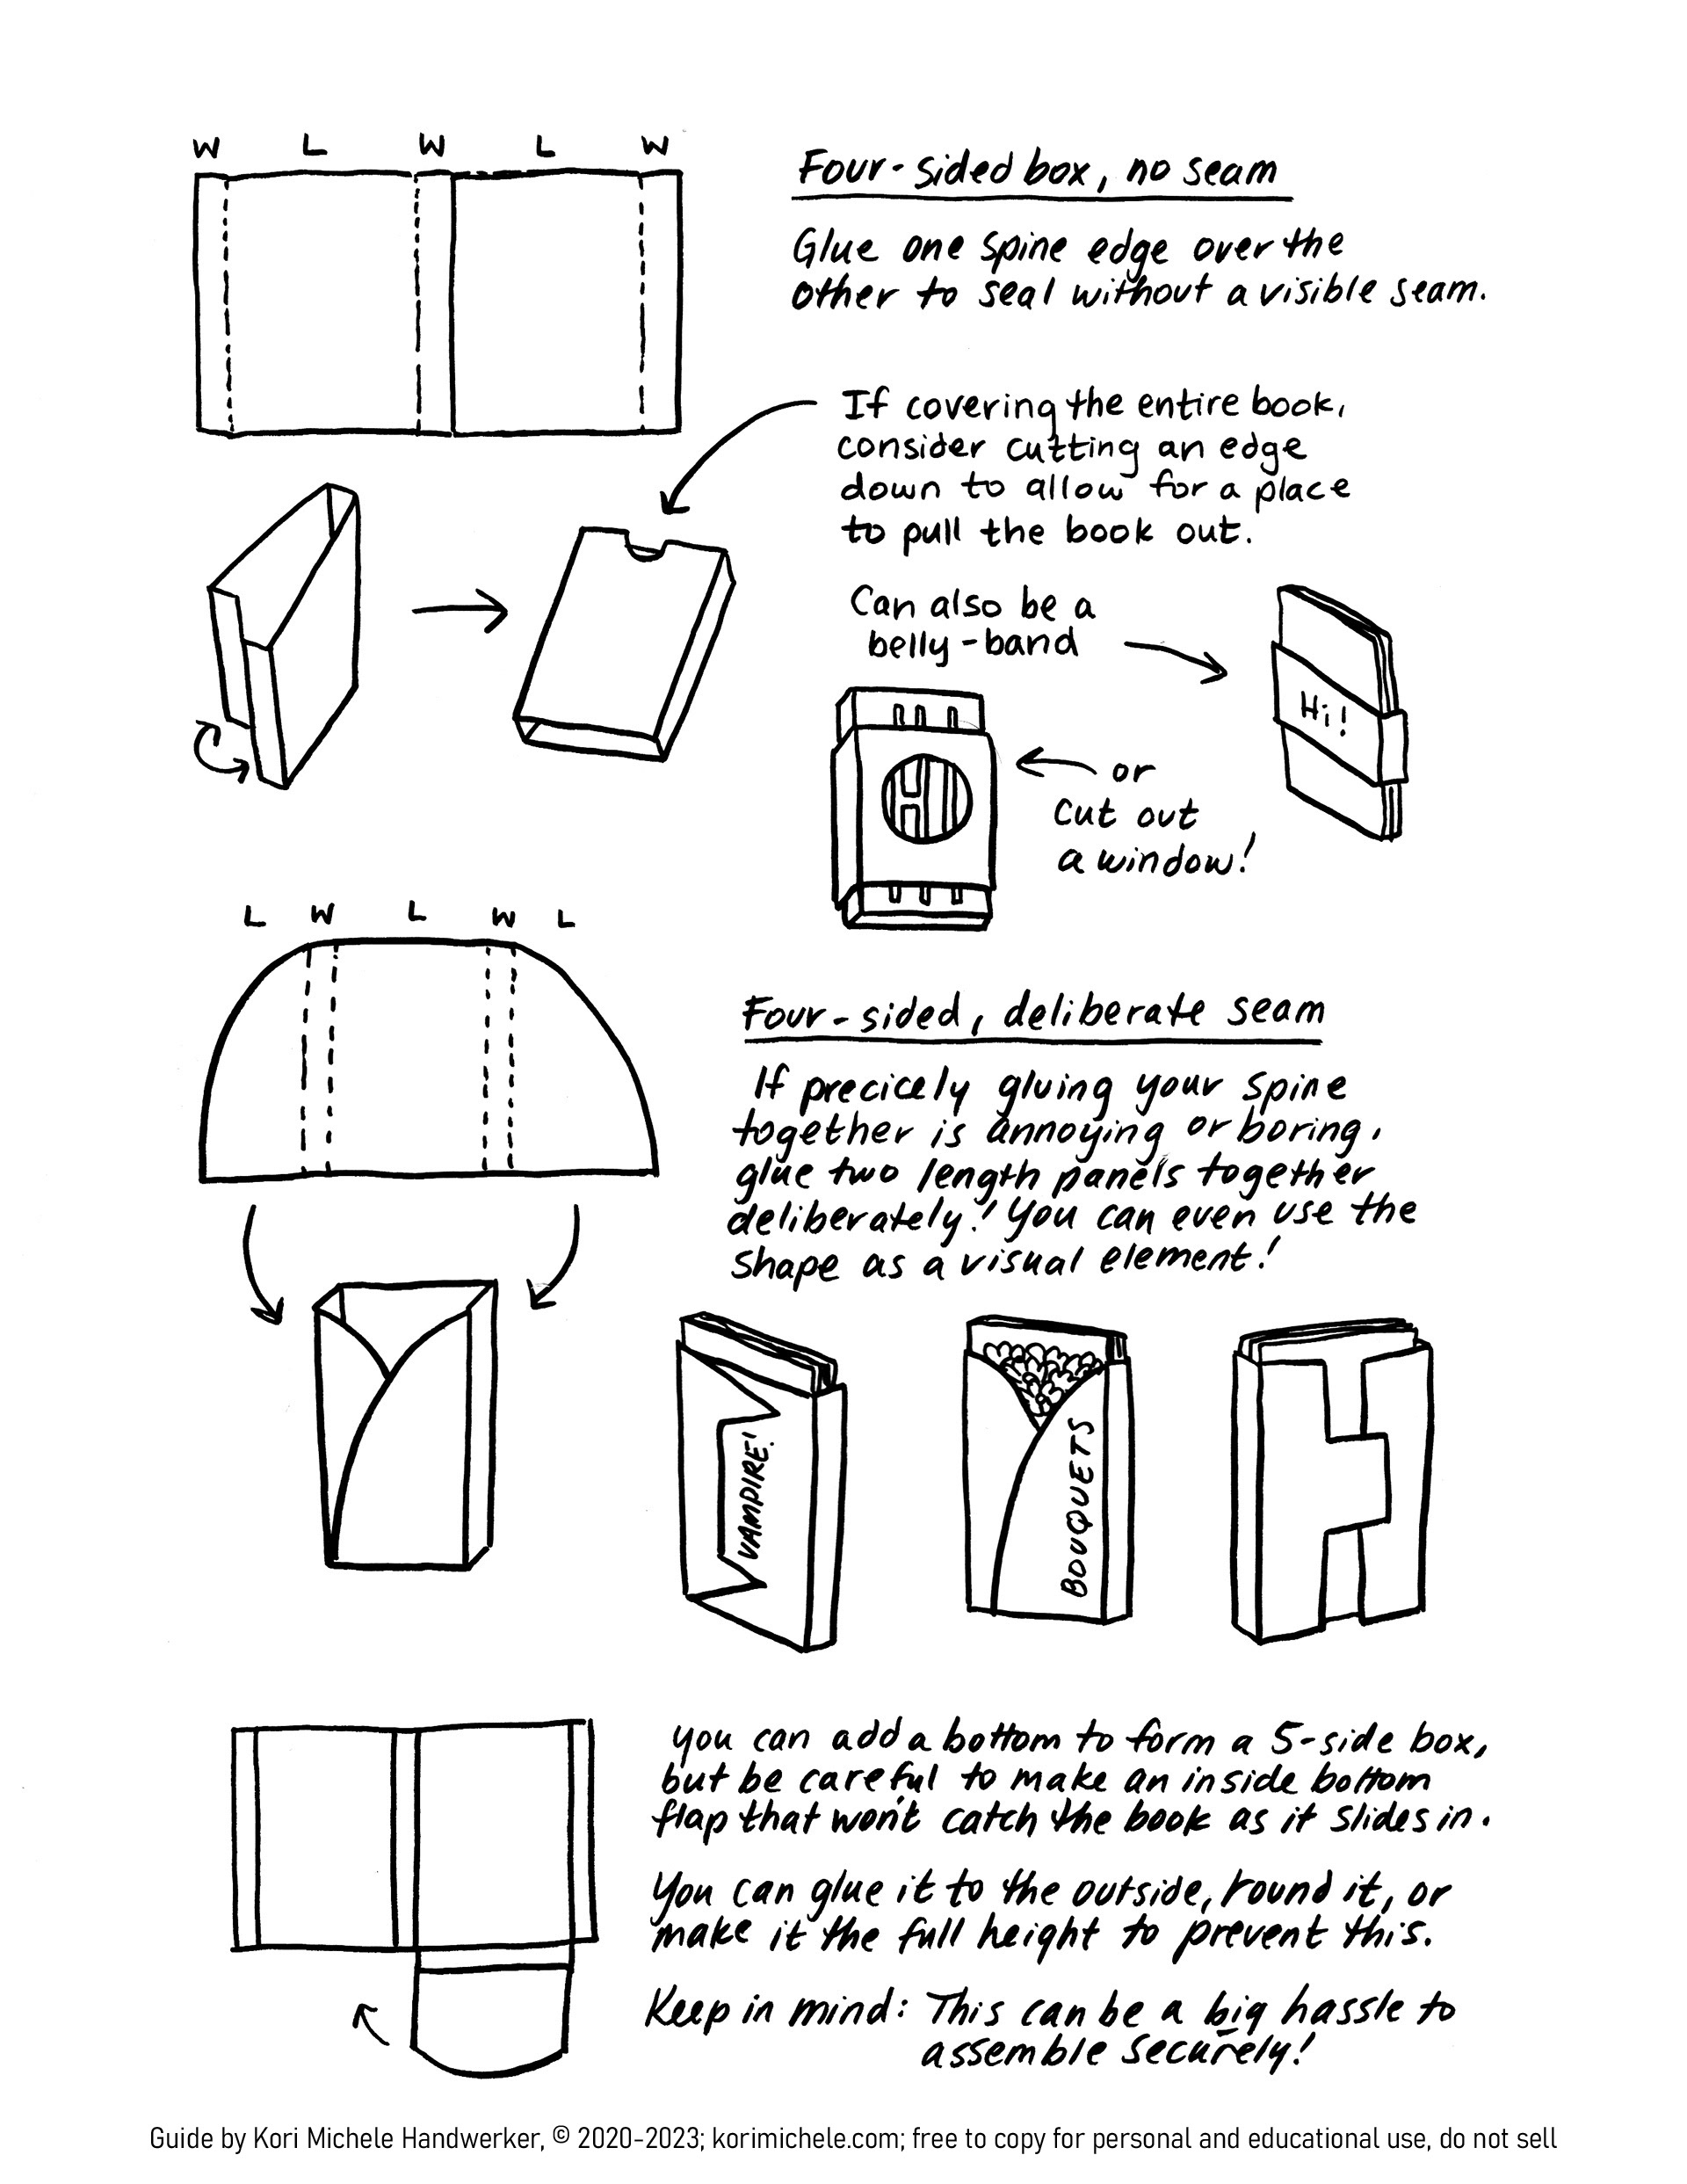 W L W L W
Four-sided box, no seam
Glue one spine edge over the
other to seal without a visible seam.
If covering the entire book,
consider cutting an edge
down to allow for a place
to pull the book out.
Can also be a
belly-band
Hi!
HI
or
cut out
a window!
L W L W L
Four-sided, deliberate seam
If precicely gluing your spine
together is annoying or boring,
glue two length panels together
deliberately! You can even use the
shape as a visual element!
VAMPIRE!
BOUQUETS
You can add a bottom to form a 5-side box,
but be careful to make an inside bottom
flap that won't catch the book as it slides in.
You can glue it to the outside, round it, or
make it the full height to prevent this.
Keep in mind: This can be a big hassle to
assemble securely!
Guide by Kori Michele Handwerker, © 2020-2023; korimichele.com; free to copy for personal and educational use, do not sell